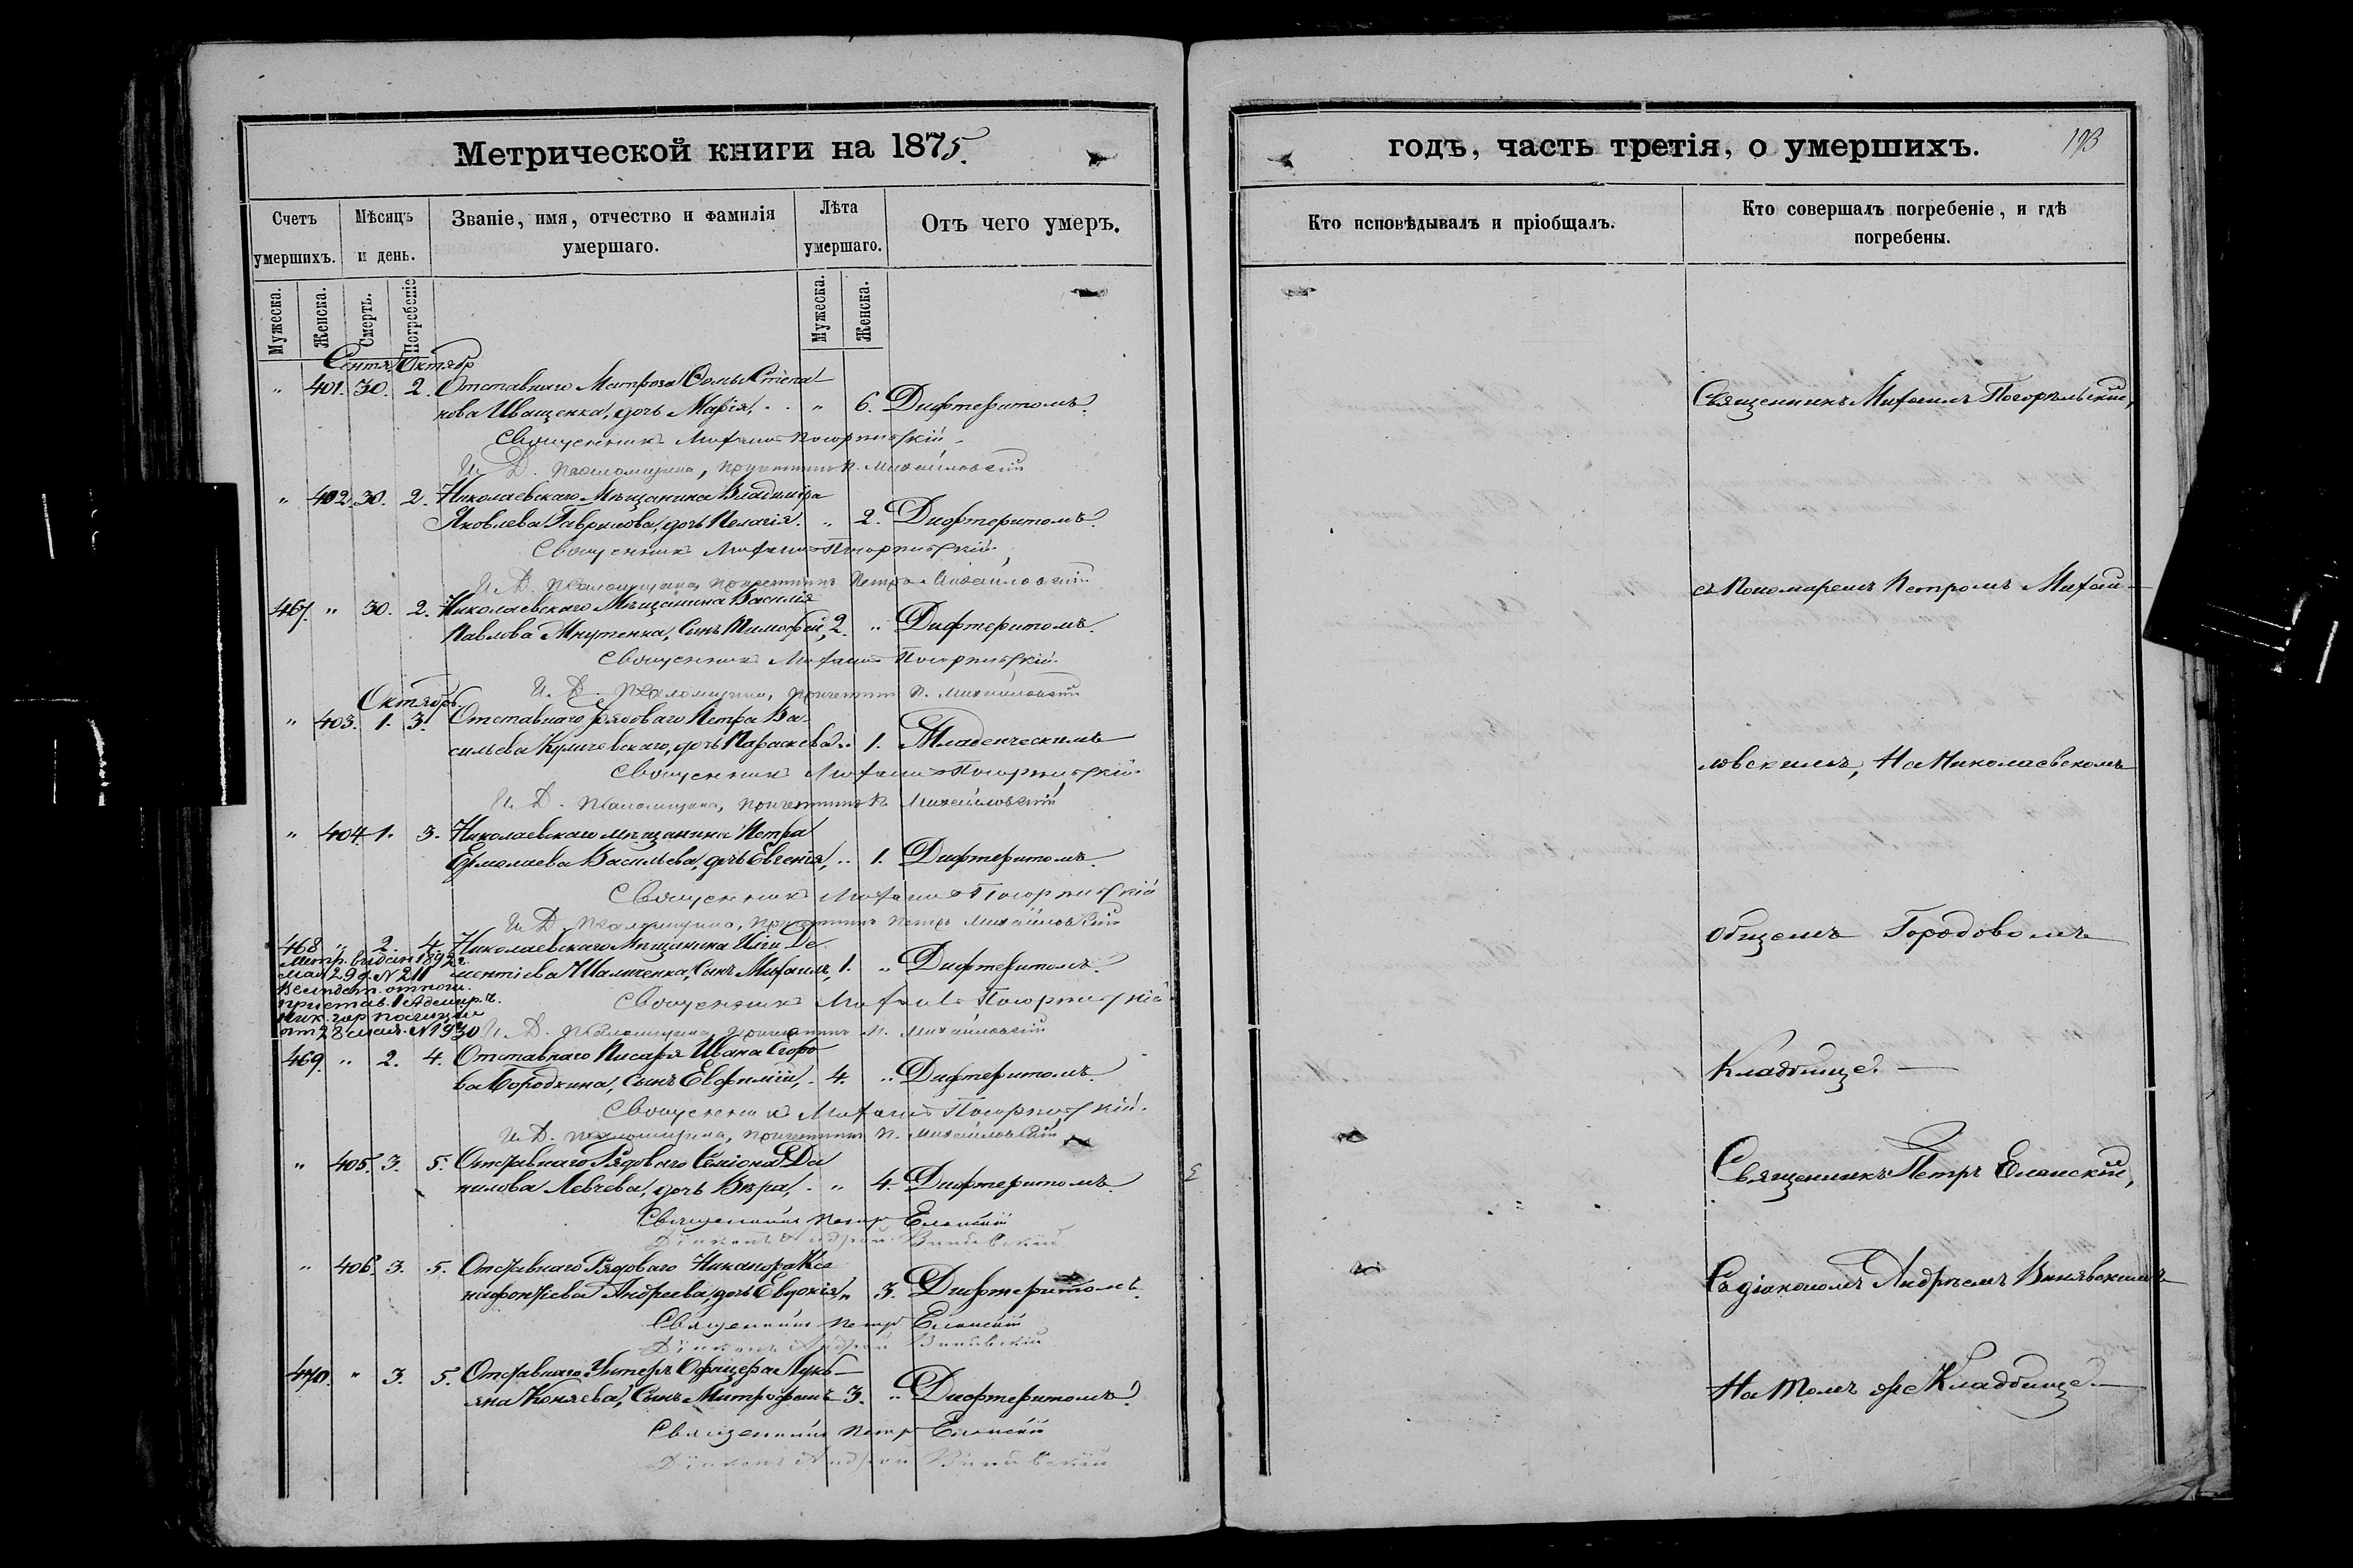 Метрической книги на 1875.
Счетъ умершихъ.
Мѣсяцъ и день.
Званіе, имя, отчество и фамилія умершаго.
Лѣта умершаго.
Отъ чего умеръ.
Мужеска.
Женска.
Смерть.
Погребеніе
Мужеска.
Женска.
Сентя. Октябр
" 401. 30. 2. Отставнаго Матроза Ѳомы Степа-
нова Иващенка, дочь Марія, " 6. Дифтеритомъ.
Священникъ Михаилъ Погорѣльскій
И. Д. псаломщика, причетникъ П. Михайловскій
" 402. 30. 2. Николаевскаго Мѣщанина Владиміра
Яковлева Гаврилова, дочь Пелагія. " 2. Дифтеритомъ.
Священникъ Михаилъ Погорѣльскій
И. Д. псаломщика, причетникъ Петръ Михайловскій
467. " 30. 2. Николаевскаго Мѣщанина Василія
Павлова Мнутенка, Сынъ Тимофей, 2. " Дифтеритомъ.
Священникъ Михаилъ Погорѣльскій
И. Д. псаломщика, причетникъ П. Михайловскій
Октябрь.
" 403. 1. 3. Отставнаго рядоваго Петра Ва-
сильева Куличевскаго, дочь Параскева " 1. Младенческимъ
Священникъ Михаилъ Погорѣльскій
И. Д. псаломщика, причетникъ П. Михайловскій
" 404. 1. 3. Николаевскаго мѣщанина Петра
Ермолаева Васильева, дочь Евгенія, " 1. Дифтеритомъ.
Священникъ Михаилъ Погорѣльскій
И. Д. псаломщика, причетникъ Петръ Михайловскій
468 " 2. 4. Николаевскаго Мѣщанина Иліи Де-
ментіева Шамченка, Сынъ Михаилъ, 1. " Дифтеритомъ.
Метр. видан 1892 г.
мая 29 д. № 211
Вслѣдст. отнош.
пристав. 1 Адмир. ч.
Ник. гор. полиціи
от 28 мая. № 1930
Священникъ Михаилъ Погорѣльскій
И. Д. псаломщика, причетникъ П. Михайловскій
469. " 2. 4. Отставнаго Писаря Ивана Егоро-
ва Бородкина, сынъ Евфимій, 4. " Дифтеритомъ.
Священникъ Михаилъ Погорѣльскій.
И. Д. псаломщика, причетникъ П. Михайловскій
" 405. 3. 5. Отставнаго Рядоваго Семіона Да-
нилова Левчева, дочь Вѣра, " 4. Дифтеритомъ
Священникъ Петръ Еланскій
Діаконъ Андрей
" 406. 3. 5. Отставнаго Рядоваго Никанора Ксе-
нофонтіева Андреева, дочь Евдокія, " 3. Дифтеритомъ.
Священникъ Петръ Еланскій
Діаконъ Андрей
470. " 3. 5. Отставнаго Унтеръ Офицера Лукь-
яна Коняева, Сынъ Митрофанъ 3. " Дифтеритомъ.
Священникъ Петръ Еланскій
Діаконъ Андрей
годъ, часть третія, о умершихъ.
193
Кто исповѣдывалъ и пріобщалъ.
Кто совершалъ погребеніе, и гдѣ погребены.
Священникъ Михаилъ Погорѣльскій,
съ Пономаремъ Петромъ Михай-
ловскимъ, На Николаевскомъ
общемъ Городовомъ
Кладбище.
Священникъ Петръ Еланскій,
Съ діакономъ Андреемъ
На томъ же Кладбище.